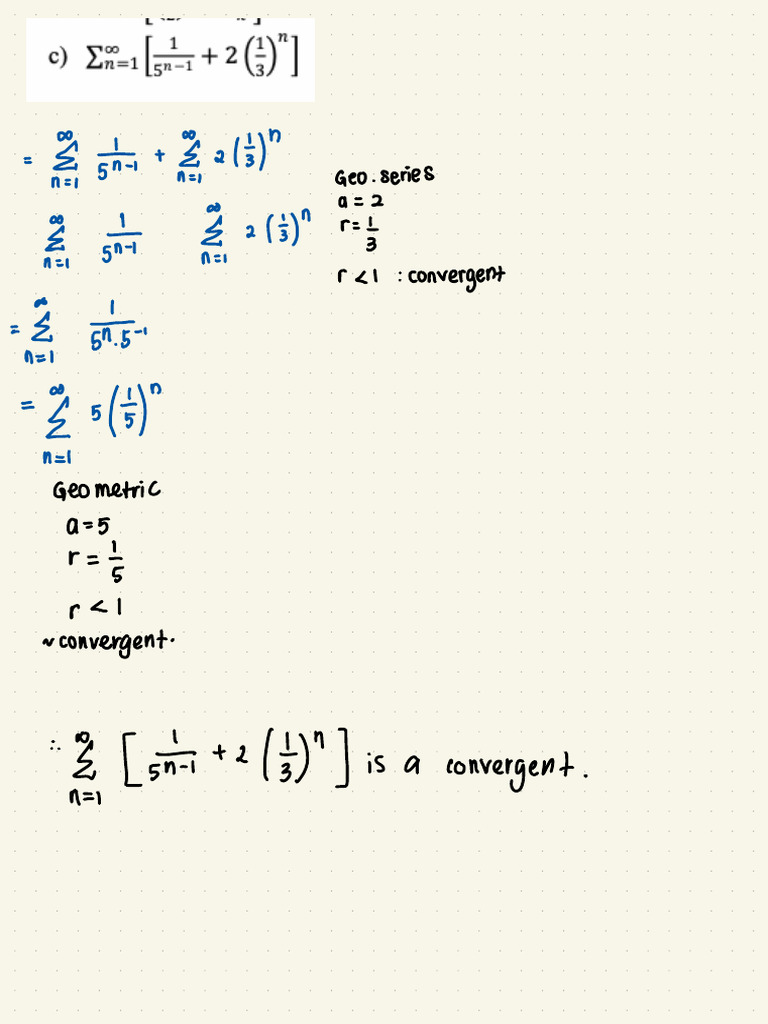 c) ∑_{n=1}^{∞} [1/5^{n−1} + 2(1/3)^n]
= ∑_{n=1}^{∞} 1/5^{n-1} + ∑_{n=1}^{∞} 2(1/3)^n
Geo. series
a = 2
r = 1/3
r < 1 : convergent
∑_{n=1}^{∞} 1/5^{n-1} ∑_{n=1}^{∞} 2(1/3)^n
= ∑_{n=1}^{∞} 1/5^n.5^{-1}
= ∑_{n=1}^{∞} 5(1/5)^n
Geometric
a = 5
r = 1/5
r < 1
~ convergent.
∴ ∑_{n=1}^{∞} [1/5^{n-1} + 2(1/3)^n] is a convergent.